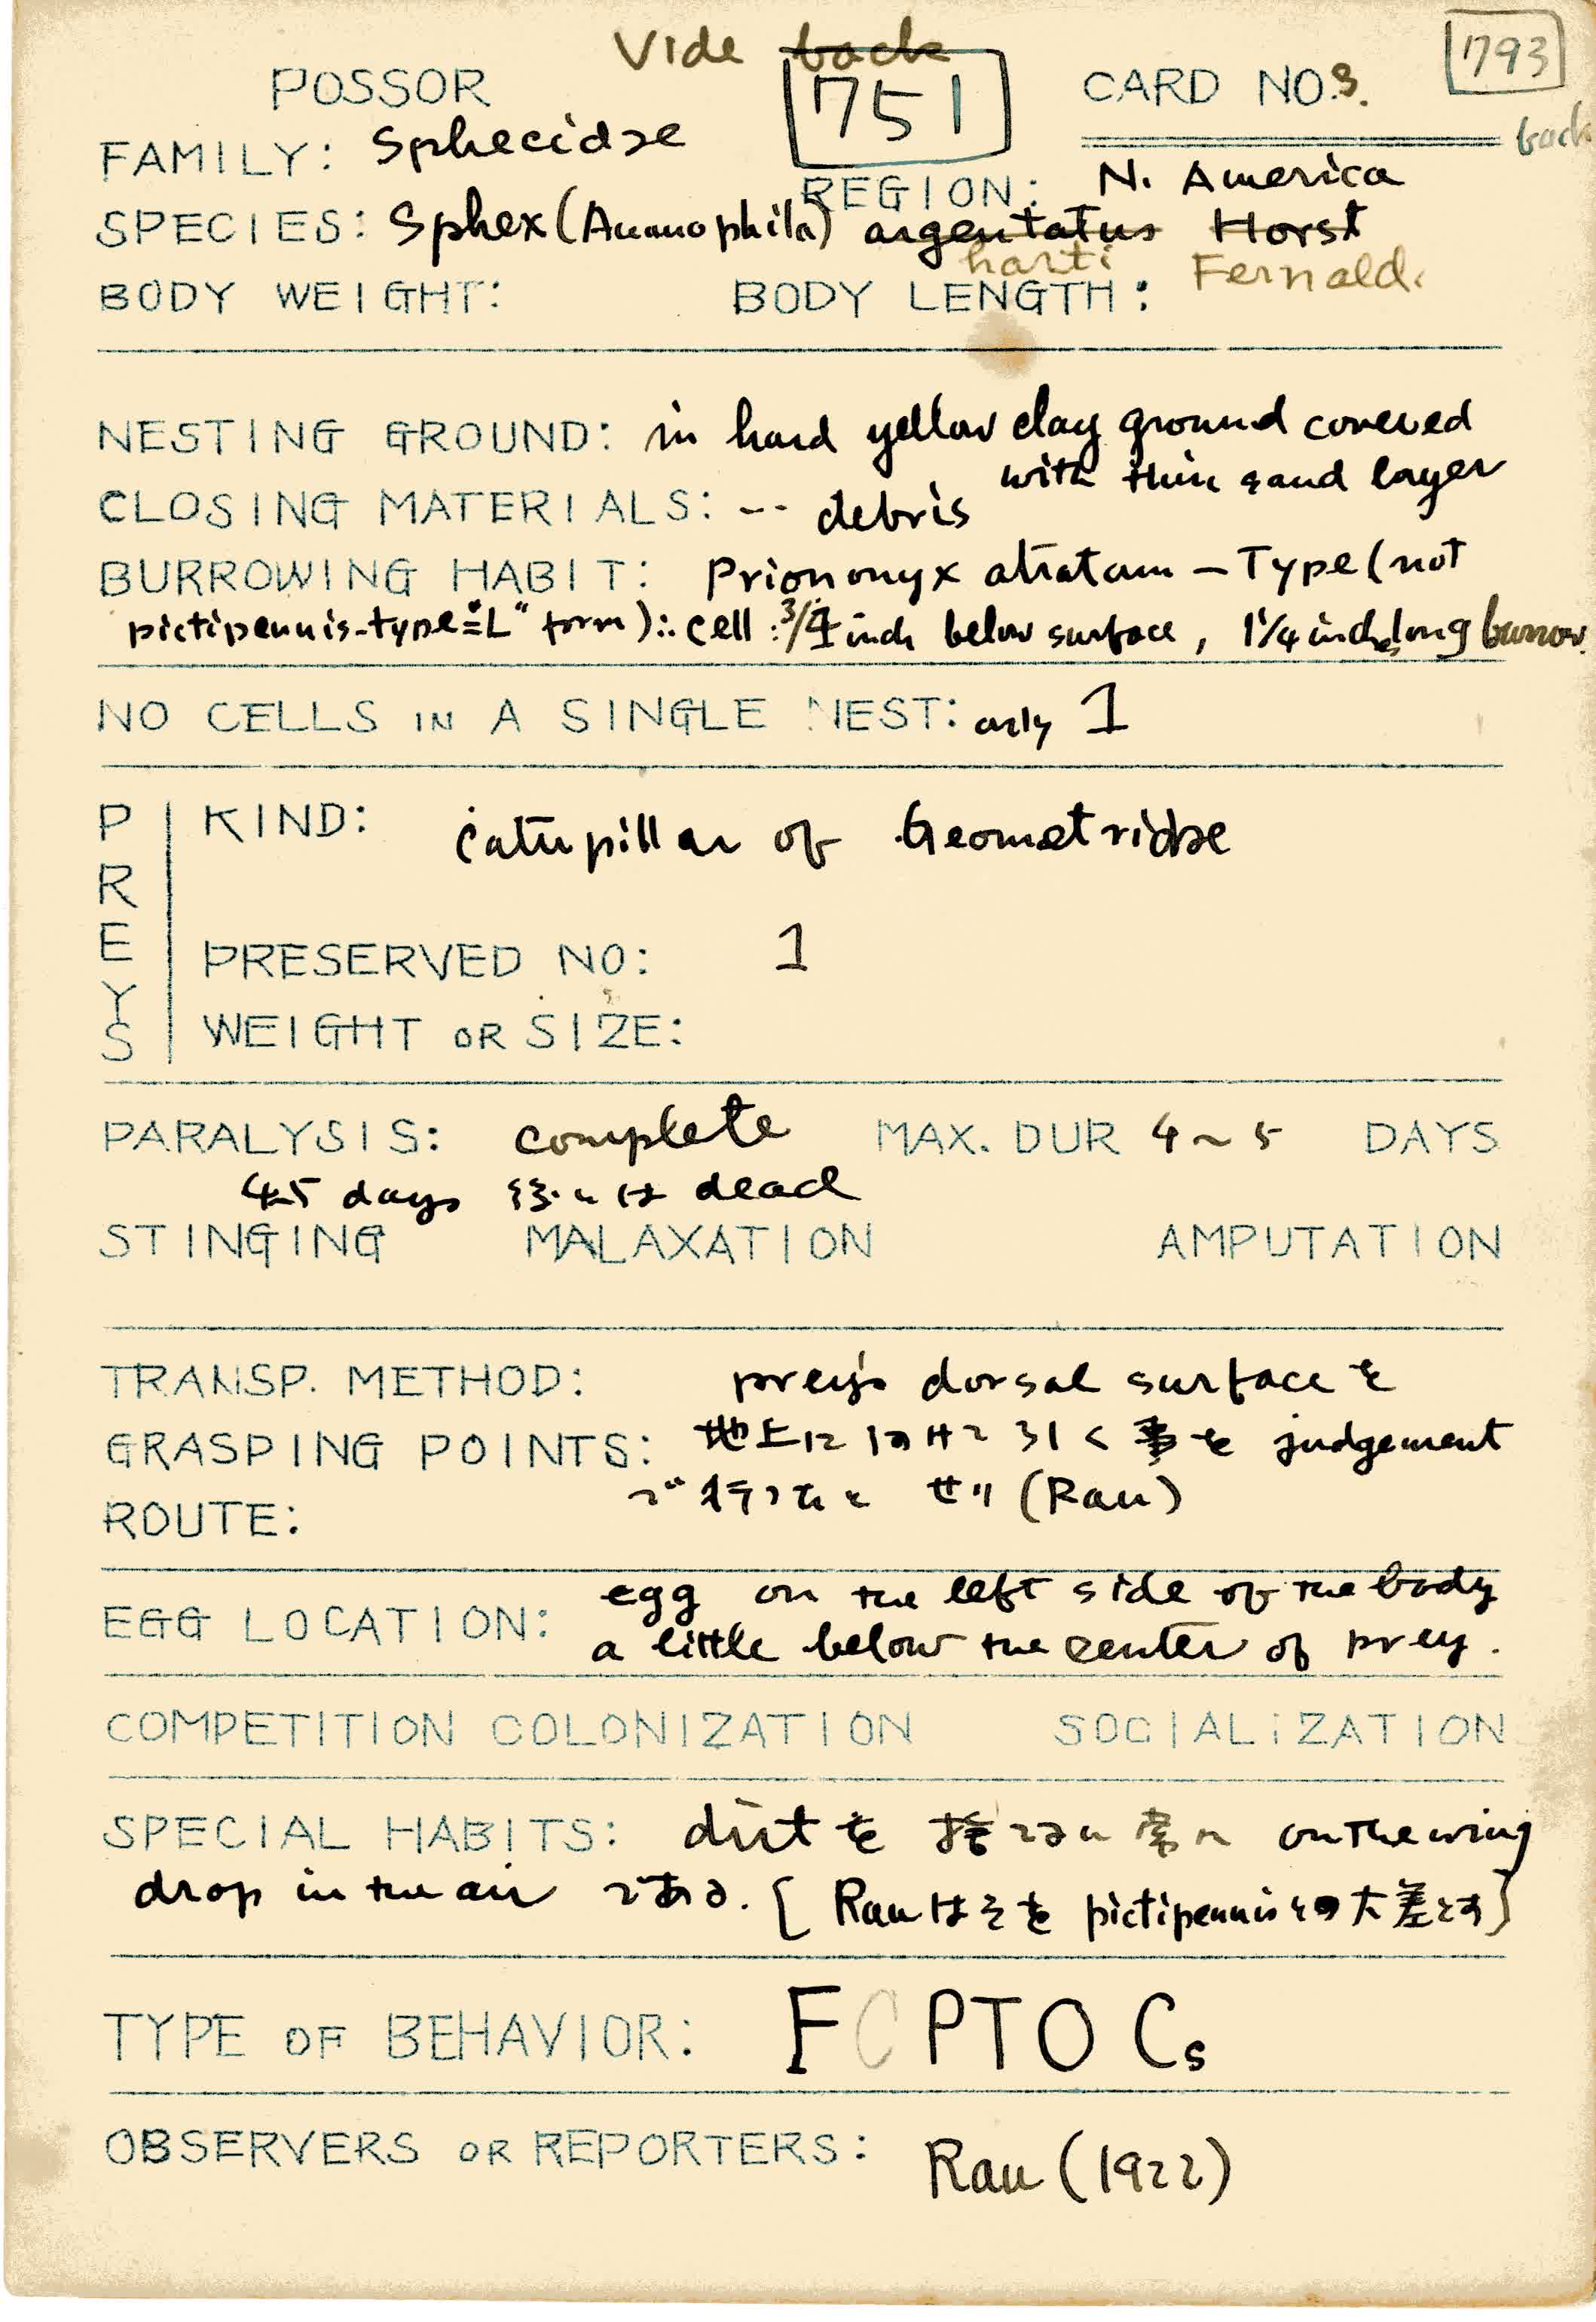 Vide back
1793
POSSOR 751 CARD NO.3.
back
FAMILY: Sphecidae REGION: N. America
SPECIES: Sphex (Ammophila) argentatus Horst
harti Fernald.
BODY WEIGHT: BODY LENGTH:
NESTING GROUND: in hard yellow clay ground covered
with thin sand layer
CLOSING MATERIALS: -- debris
BURROWING HABIT: Priononyx atratum - Type (not
pictipennis-type="L" form) ∴ cell: 3/4 inch below surface, 1 1/4 inches long burrow.
NO CELLS IN A SINGLE NEST: only 1
PREYS
KIND: Caterpillar of Geometridae
PRESERVED NO: 1
WEIGHT OR SIZE:
PARALYSIS: complete MAX. DUR 4~5 DAYS
4-5 days 後には dead
STINGING MALAXATION AMPUTATION
TRANSP. METHOD: prey's dorsal surface を
GRASPING POINTS: 地上に向けて引く事を judgement
で行つたと せり (Rau)
ROUTE:
EGG LOCATION: egg on the left side of the body
a little below the center of prey.
COMPETITION COLONIZATION SOCIALIZATION
SPECIAL HABITS: dirt を on the wing
drop in the air である. [Rau はそを pictipennis との大差とす]
TYPE OF BEHAVIOR: F C P T O Cs
OBSERVERS OR REPORTERS: Rau (1922)